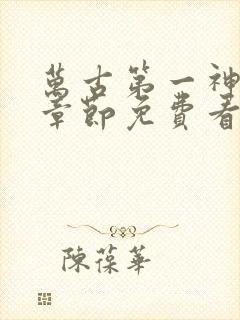 萬古第一神
章節免費看
陳葆華